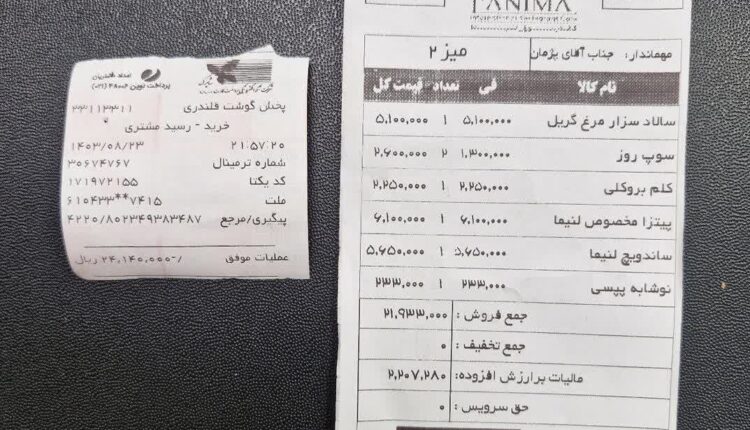 پرداخت نوین
پخش گوشت قلندری ۲۳۱۱۳۳۱۱
خرید - رسید مشتری
۲۱:۵۷:۲۰ ۱۴۰۳/۰۸/۲۳
شماره ترمینال ۳۰۶۷۴۷۶۷
کد یکتا ۱۷۱۹۷۲۱۵۵
ملت ۶۱۰۴۳۳**۷۴۱۵
پیگیری/مرجع ۴۲۲۰/۸۰۲۳۴۹۳۸۳۴۸۷
عملیات موفق ۲۴,۱۴۰,۰۰۰/- ریال
LANIMA
مهماندار: جناب آقای پژمان میز ۲
نام کالا فی تعداد قیمت کل
سالاد سزار مرغ گریل ۵,۱۰۰,۰۰۰ ۱ ۵,۱۰۰,۰۰۰
سوپ روز ۱,۳۰۰,۰۰۰ ۲ ۲,۶۰۰,۰۰۰
کلم بروکلی ۲,۲۵۰,۰۰۰ ۱ ۲,۲۵۰,۰۰۰
پیتزا مخصوص لنیما ۶,۱۰۰,۰۰۰ ۱ ۶,۱۰۰,۰۰۰
ساندویچ لنیما ۵,۶۵۰,۰۰۰ ۱ ۵,۶۵۰,۰۰۰
نوشابه پپسی ۲۳۳,۰۰۰ ۱ ۲۳۳,۰۰۰
جمع فروش : ۲۱,۹۳۳,۰۰۰
جمع تخفیف : ۰
مالیات برارزش افزوده: ۲,۲۰۷,۲۸۰
حق سرویس : ۰